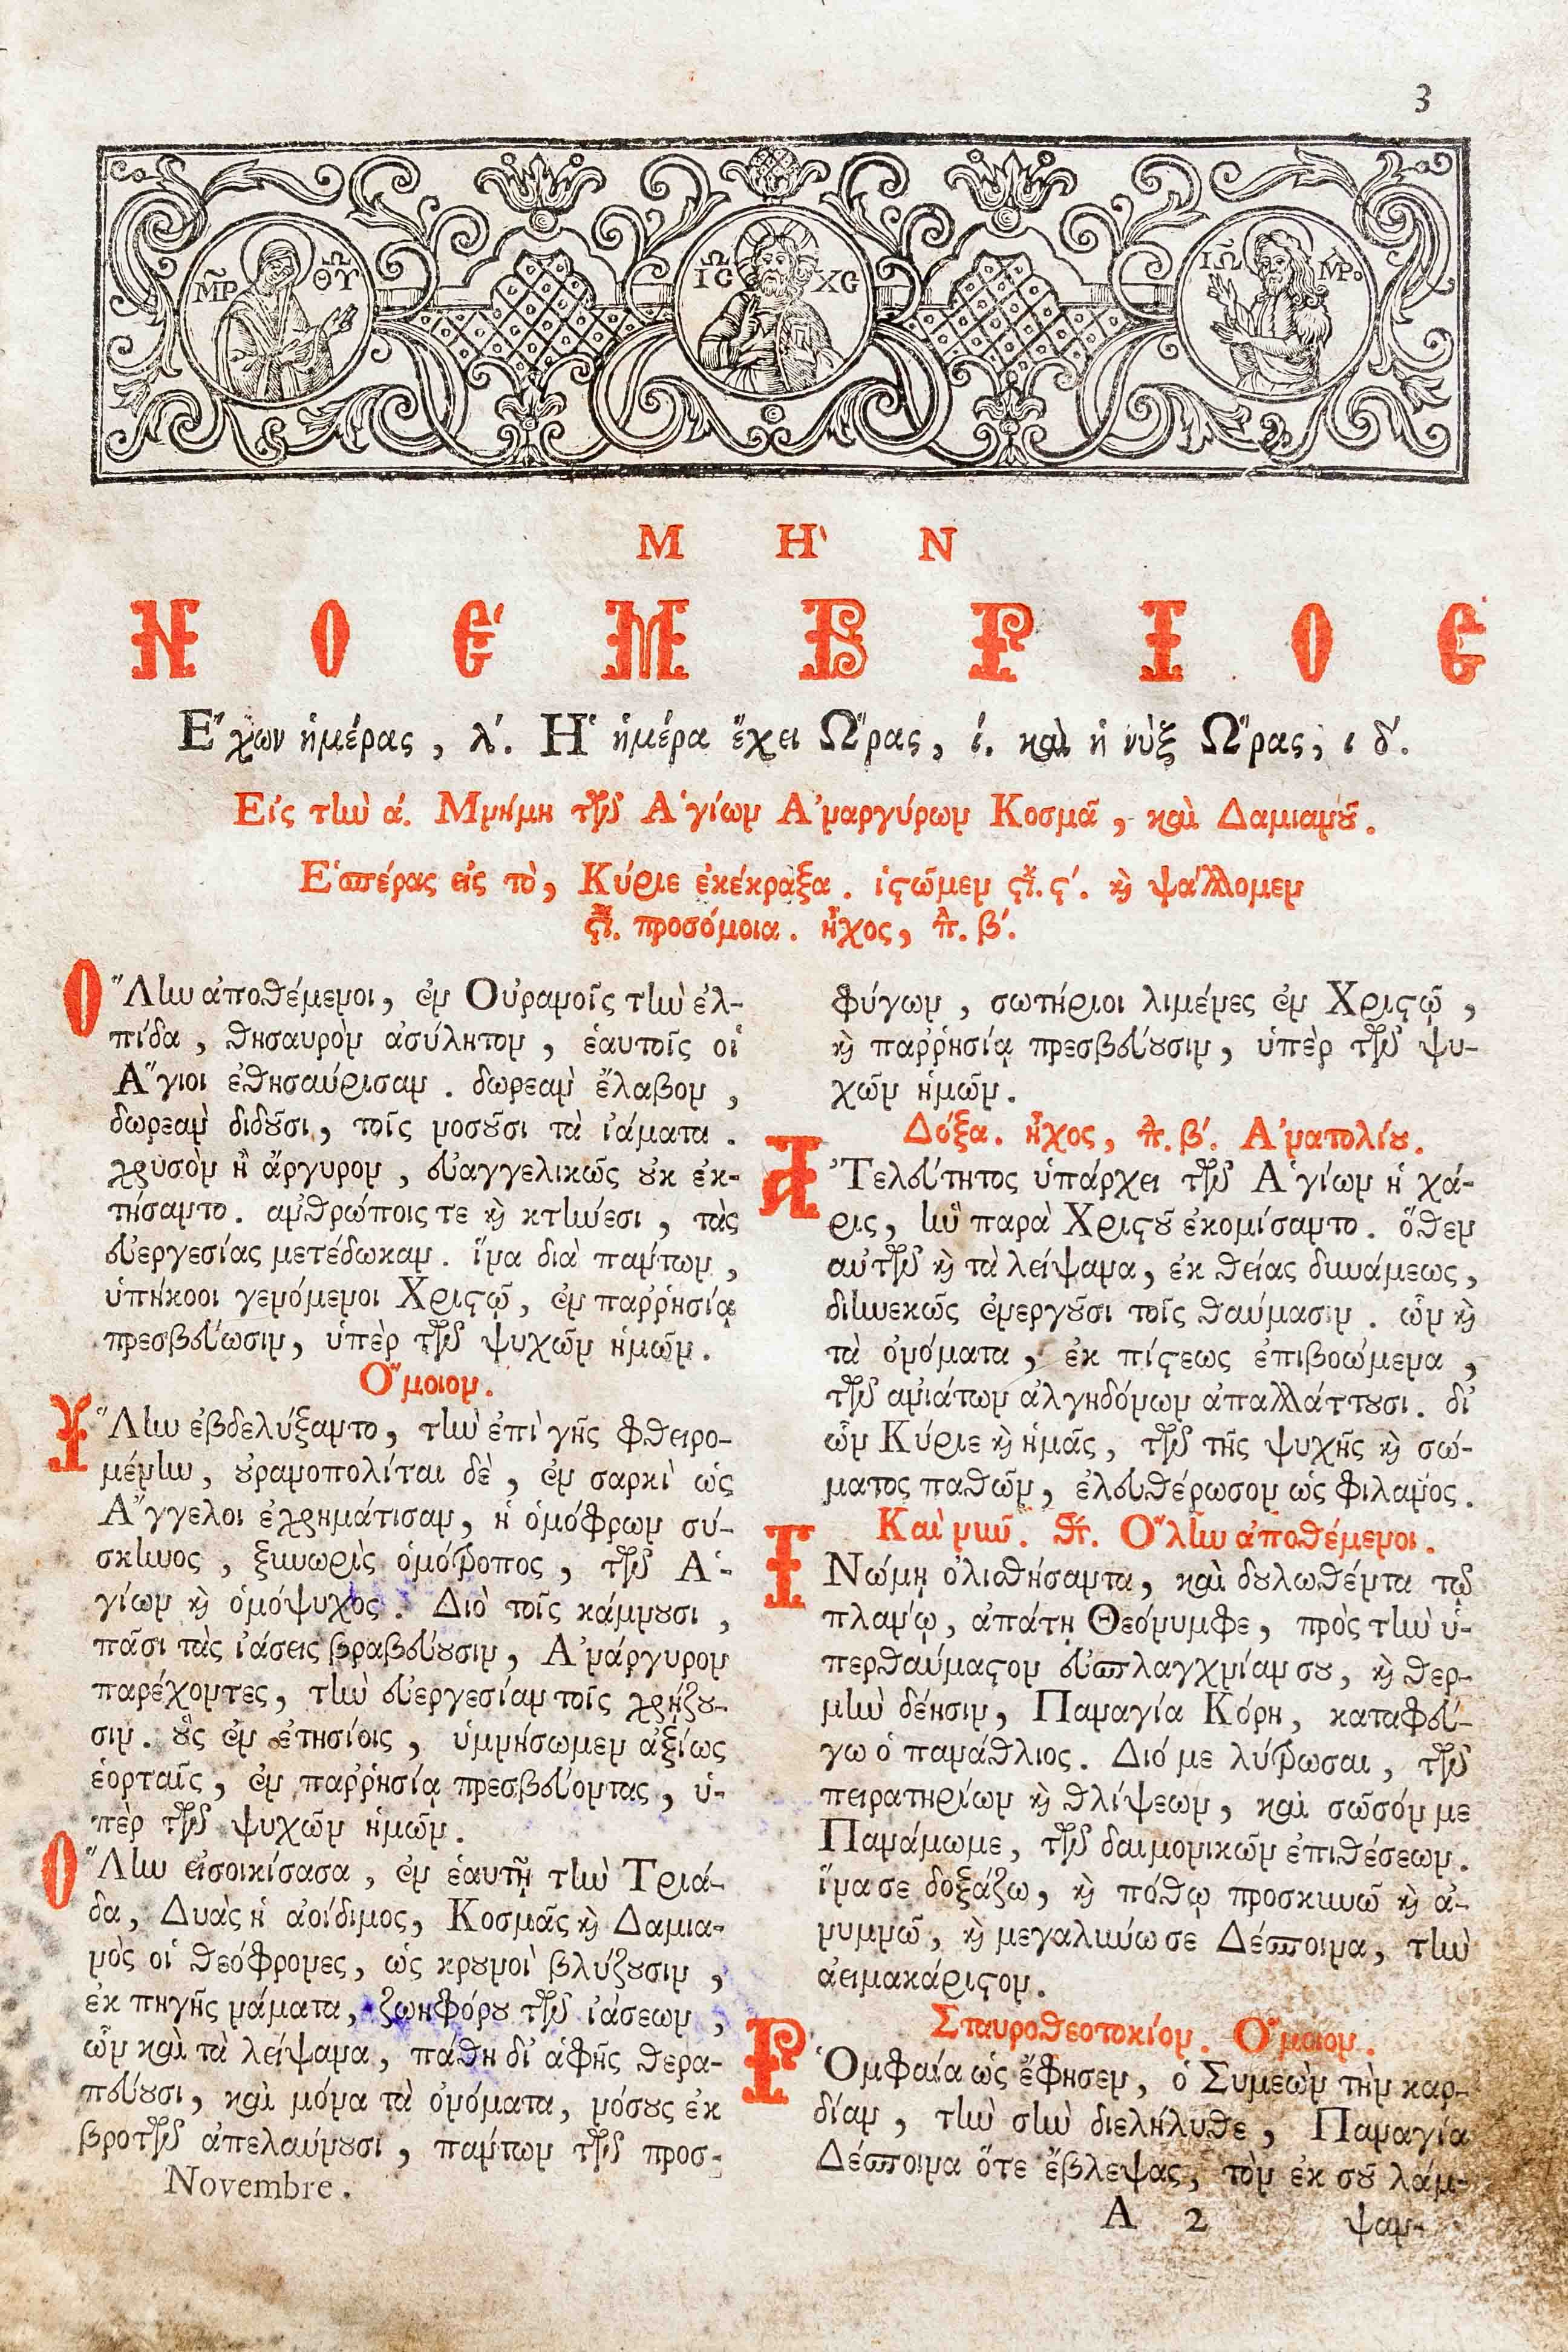 3
ΜΡ ΘΥ
Ο Ω Ν ΙC ΧC
ΙΩ
ΜΗ'Ν
ΝΟΕ'ΜΒΡΙΟC
Ε῎χων ἡμέρας, λ'. Ἡ ἡμέρα ἔχει Ὥρας, ί. καὶ ἡ νὺξ Ὥρας, ι δ'.
Εἰς τὴν ά. Μνήμη τῶν Ἁγίων Ἀναργύρων Κοσμᾶ, καὶ Δαμιανοῦ.
Ἑσπέρας εἰς τὸ, Κύριε ἐκέκραξα. ἱστῶμεν στί. ς'. καὶ ψάλλομεν
στί. προσόμοια. ἦχος, πλ. β'.
Ὅλην ἀποθέμενοι, ἐν Οὐρανοῖς τὴν ἐλ-
πίδα, θησαυρὸν ἀσύλητον, ἑαυτοῖς οἱ
Ἅγιοι ἐθησαύρισαν. δωρεὰν ἔλαβον,
δωρεὰν διδοῦσι, τοῖς νοσοῦσι τὰ ἰάματα.
χρυσὸν ἢ ἄργυρον, εὐαγγελικῶς οὐκ ἐκ-
τήσαντο. ἀνθρώποις τε καὶ κτήνεσι, τὰς
εὐεργεσίας μετέδωκαν. ἵνα διὰ πάντων,
ὑπήκοοι γενόμενοι Χριστῷ, ἐν παῤῥησίᾳ
πρεσβεύωσιν, ὑπὲρ τῶν ψυχῶν ἡμῶν.
Ὅμοιον.
Ὕλην ἐβδελύξαντο, τὴν ἐπὶ γῆς φθειρο-
μένην, οὐρανοπολίται δὲ, ἐν σαρκὶ ὡς
Ἄγγελοι ἐχρημάτισαν, ἡ ὁμόφρων σύ-
σκηνος, ξυνωρὶς ὁμότροπος, τῶν Ἁ-
γίων καὶ ὁμόψυχος. Διὸ τοῖς κάμνουσι,
πᾶσι τὰς ἰάσεις βραβεύουσιν, Ἀνάργυρον
παρέχοντες, τὴν εὐεργεσίαν τοῖς χρῄζου-
σιν. οὓς ἐν ἐτησίοις, ὑμνήσωμεν ἀξίως
ἑορταῖς, ἐν παῤῥησίᾳ πρεσβεύοντας, ὑ-
πὲρ τῶν ψυχῶν ἡμῶν.
Ὅλην εἰσοικίσασα, ἐν ἑαυτῇ τὴν Τριά-
δα, Δυὰς ἡ ἀοίδιμος, Κοσμᾶς καὶ Δαμια-
νὸς οἱ θεόφρονες, ὡς κρουνοὶ βλύζουσιν,
ἐκ πηγῆς νάματα, ζωηφόρου τῶν ἰάσεων,
ὧν καὶ τὰ λείψανα, πάθη δι' ἁφῆς θερα-
πεύουσι, καὶ μόνα τὰ ὀνόματα, νόσους ἐκ
βροτῶν ἀπελαύνουσι, πάντων τῶν προσ-
Novembre.
φύγων, σωτήριοι λιμένες ἐν Χριστῷ,
καὶ παῤῥησίᾳ πρεσβεύουσιν, ὑπὲρ τῶν ψυ-
χῶν ἡμῶν.
Δόξα. ἦχος, πλ. β'. Ἀνατολίου.
Ἀτελεύτητος ὑπάρχει τῶν Ἁγίων ἡ χά-
ρις, ἣν παρὰ Χριστοῦ ἐκομίσαντο. ὅθεν
αὐτῶν καὶ τὰ λείψανα, ἐκ θείας δυνάμεως,
διηνεκῶς ἐνεργοῦσι τοῖς θαύμασιν. ὧν καὶ
τὰ ὀνόματα, ἐκ πίστεως ἐπιβοώμενα,
τῶν ἀνιάτων ἀλγηδόνων ἀπαλλάττουσι. δι'
ὧν Κύριε καὶ ἡμᾶς, τῶν τῆς ψυχῆς καὶ σώ-
ματος παθῶν, ἐλευθέρωσον ὡς φιλάνος.
Καὶ νῦν. Θκ. Ὅλην ἀποθέμενοι.
Γνώμῃ ὀλισθήσαντα, καὶ δουλωθέντα τῷ
πλάνῳ, ἀπάτῃ Θεόνυμφε, πρὸς τὴν ὑ-
περθαύμαστον εὐσπλαγχνίαν σου, καὶ θερ-
μὴν δέησιν, Παναγία Κόρη, καταφεύ-
γω ὁ πανάθλιος. Διό με λύτρωσαι, τῶν
πειρατηρίων καὶ θλίψεων, καὶ σῶσόν με
Πανάμωμε, τῶν δαιμονικῶν ἐπιθέσεων.
ἵνα σε δοξάζω, καὶ πόθῳ προσκυνῶ καὶ ἀ-
νυμνῶ, καὶ μεγαλύνω σε Δέσποινα, τὴν
ἀειμακάριστον.
Σταυροθεοτοκίον. Ὅμοιον.
Ῥομφαία ὡς ἔφησεν, ὁ Συμεὼν τὴν καρ-
δίαν, τὴν σὴν διελήλυθε, Παναγία
Δέσποινα ὅτε ἔβλεψας, τὸν ἐκ σοῦ λάμ-
A 2 ψαν-